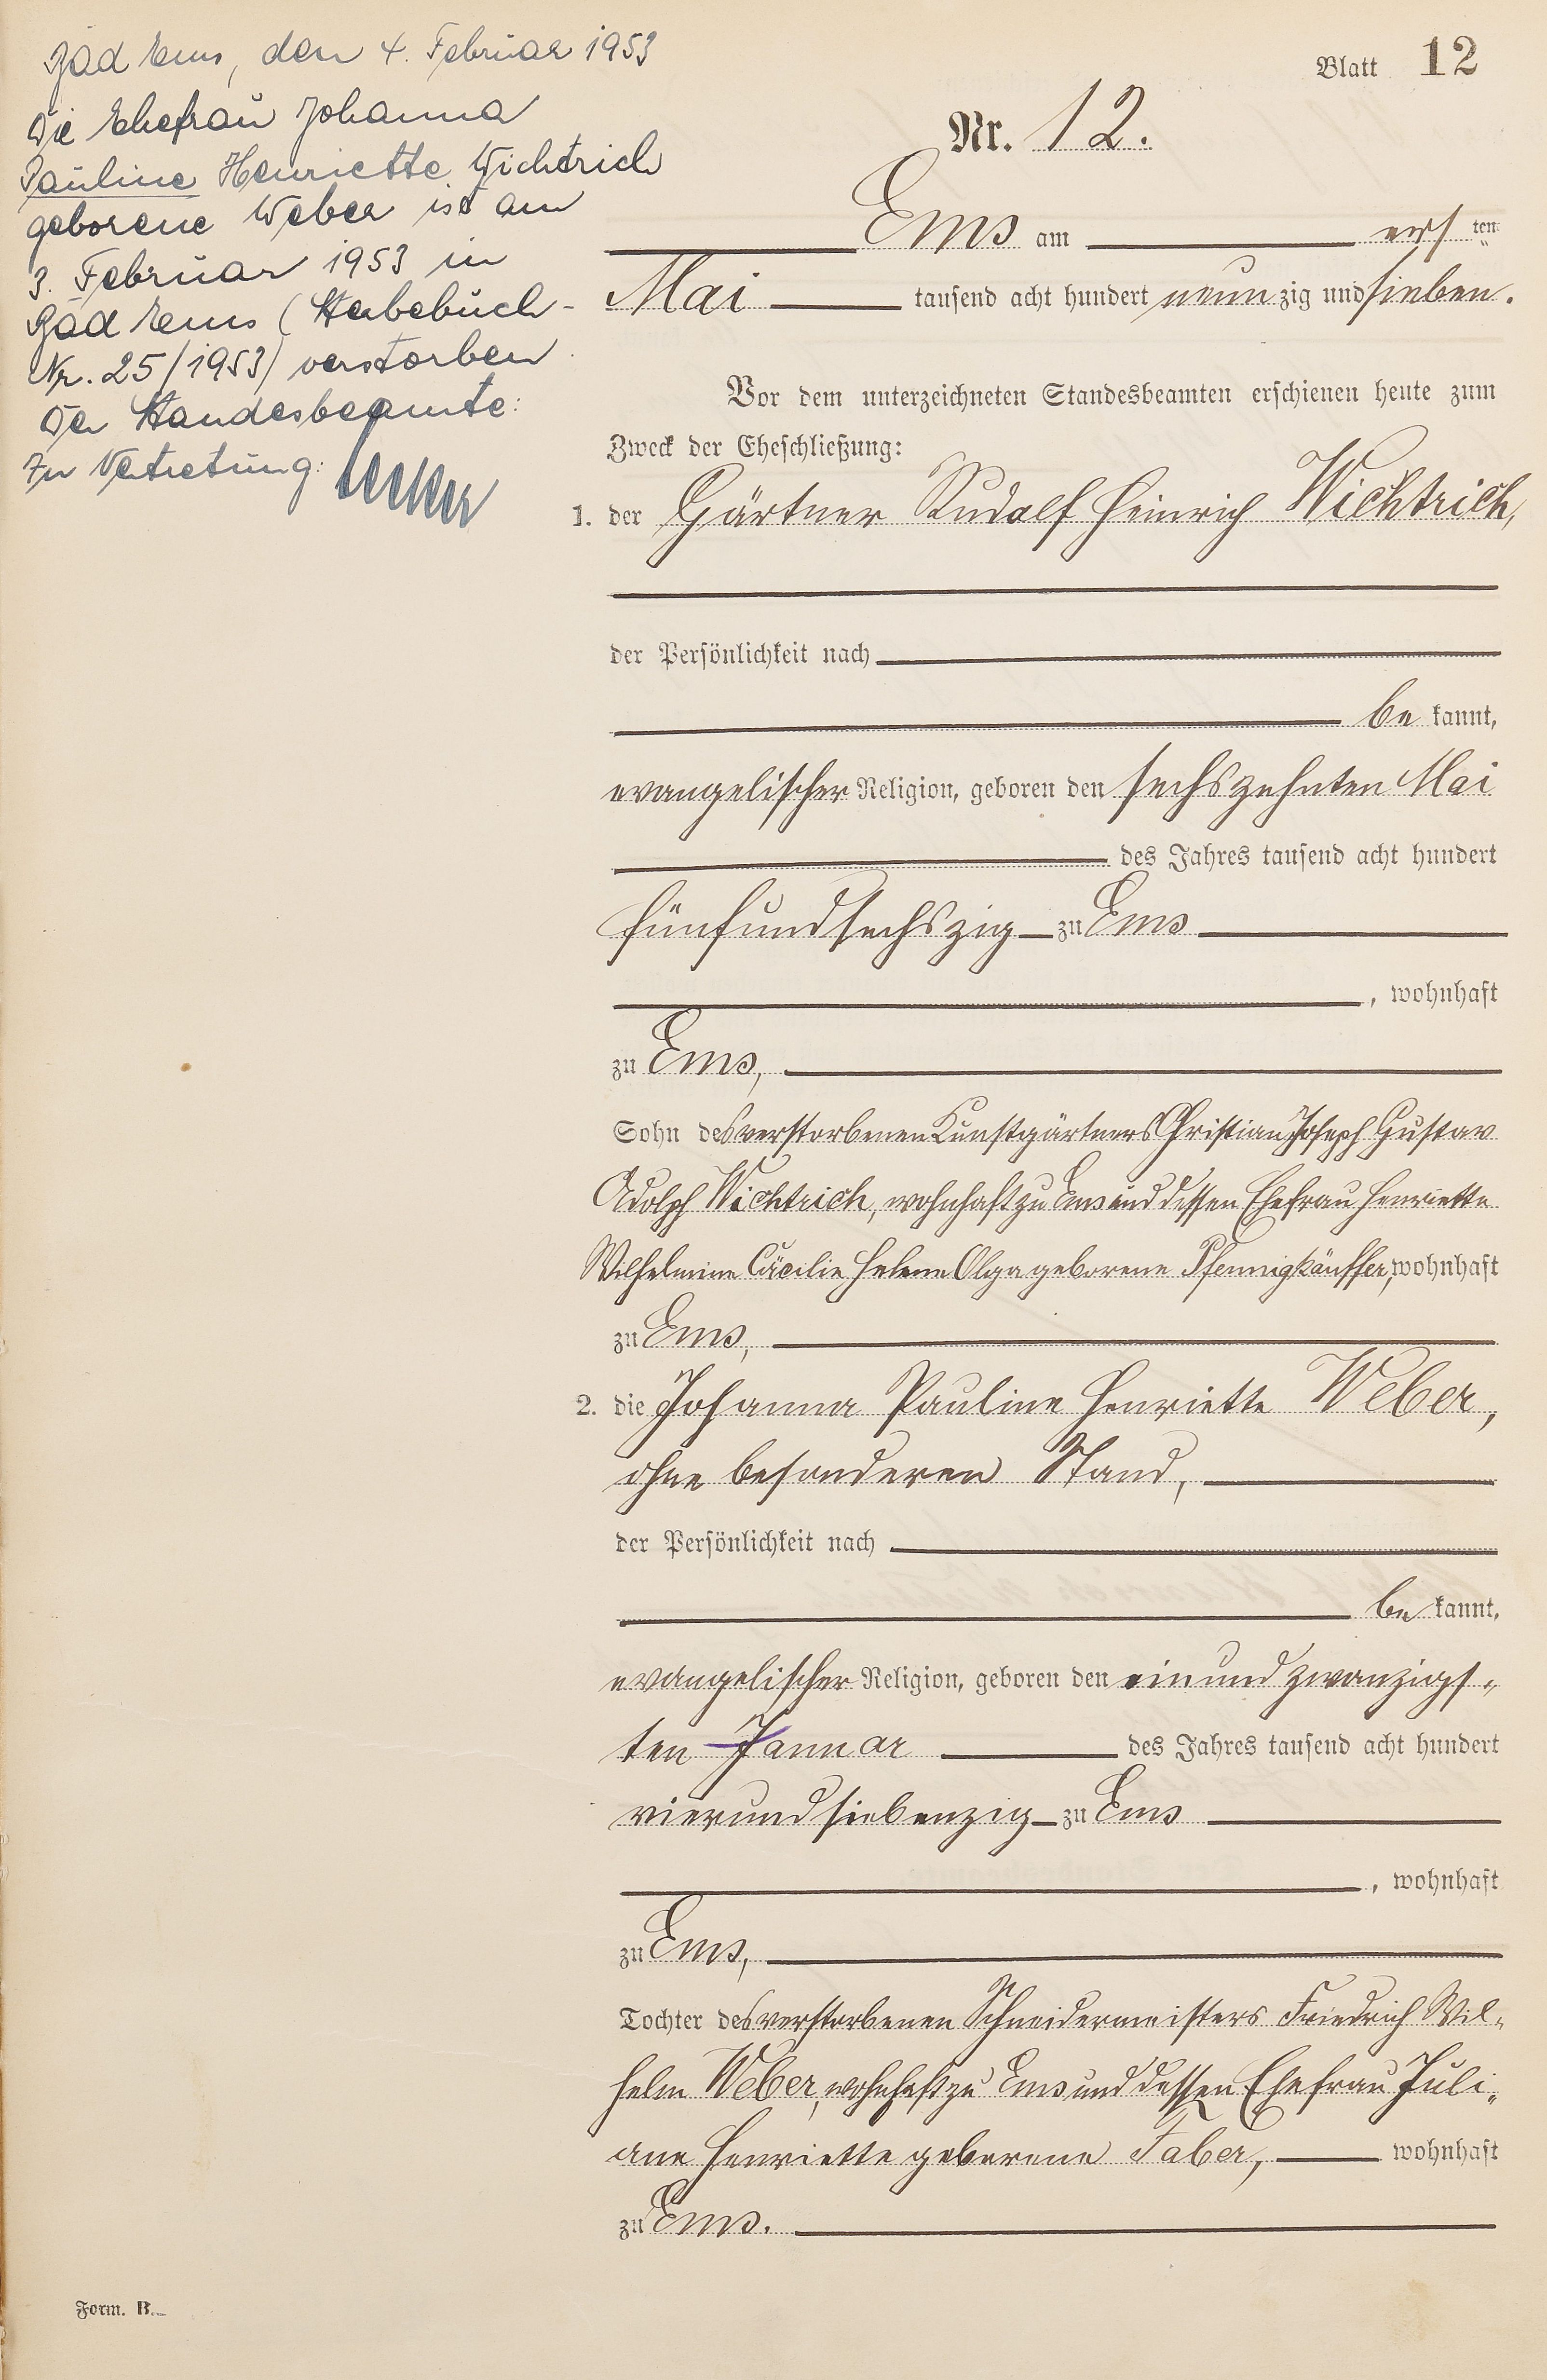 Bad Ems, den 4. Februar 1953
Die Ehefrau Johanna
Pauline Henriette Wichtrich
geborene Weber ist am
3. Februar 1953 in
Bad Ems (Sterbebuch-
Nr. 25/1953) verstorben
Der Standesbeamte:
In Vertretung:
Blatt 12
Nr. 12.
Ems am ersten
Mai tausend acht hundert neunzig und sieben.
Vor dem unterzeichneten Standesbeamten erschienen heute zum
Zweck der Eheschließung:
1. der Gärtner Rudolf Heinrich Wichtrich,
der Persönlichkeit nach
be kannt,
evangelischer Religion, geboren den sechszehnten Mai
des Jahres tausend acht hundert
fünfundsechszig zu Ems
, wohnhaft
zu Ems,
Sohn des verstorbenen Kunstgärtners Christian Joseph Gustav
Adolph Wichtrich, wohnhaft zu Ems und dessen Ehefrau Henriette
Wilhelmine Cäcilie Helene Olga geborene Pfennigkäuffer, wohnhaft
zu Ems,
2. die Johanna Pauline Henriette Weber,
ohne besonderen Stand,
der Persönlichkeit nach
be kannt,
evangelischer Religion, geboren den einundzwanzigs-
ten Januar des Jahres tausend acht hundert
vierundsiebenzig zu Ems
, wohnhaft
zu Ems,
Tochter des verstorbenen Schneidermeisters Friedrich Wil-
helm Weber, wohnhaft zu Ems und dessen Ehefrau Juli-
ane Henriette geborene Faber, wohnhaft
zu Ems.
Form. B.